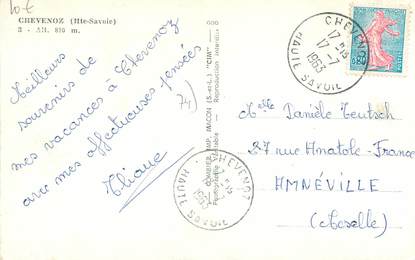 10€
CHEVENOZ (Hte-Savoie)
Alt. 810 m.
Meilleurs
souvenirs de
mes vacances à Chevenoz
avec mes affectueuses pensées
Eliane
74)
COMBIER IMP. MACON (S.-et-L.) "CIM"
Reproduction interdite
CHEVENOZ
17 H 15
17 -7
1963
HAUTE SAVOIE
0,20
POSTES
CHEVENOZ
1963
HAUTE SAVOIE
Melle Danièle Teutsch
27 rue Anatole-France
AMNÉVILLE
(Moselle)